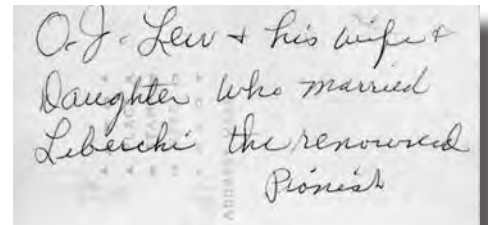 O. J. Lew + his wife +
Daughter who married
Liberchi the renowned
Pionist